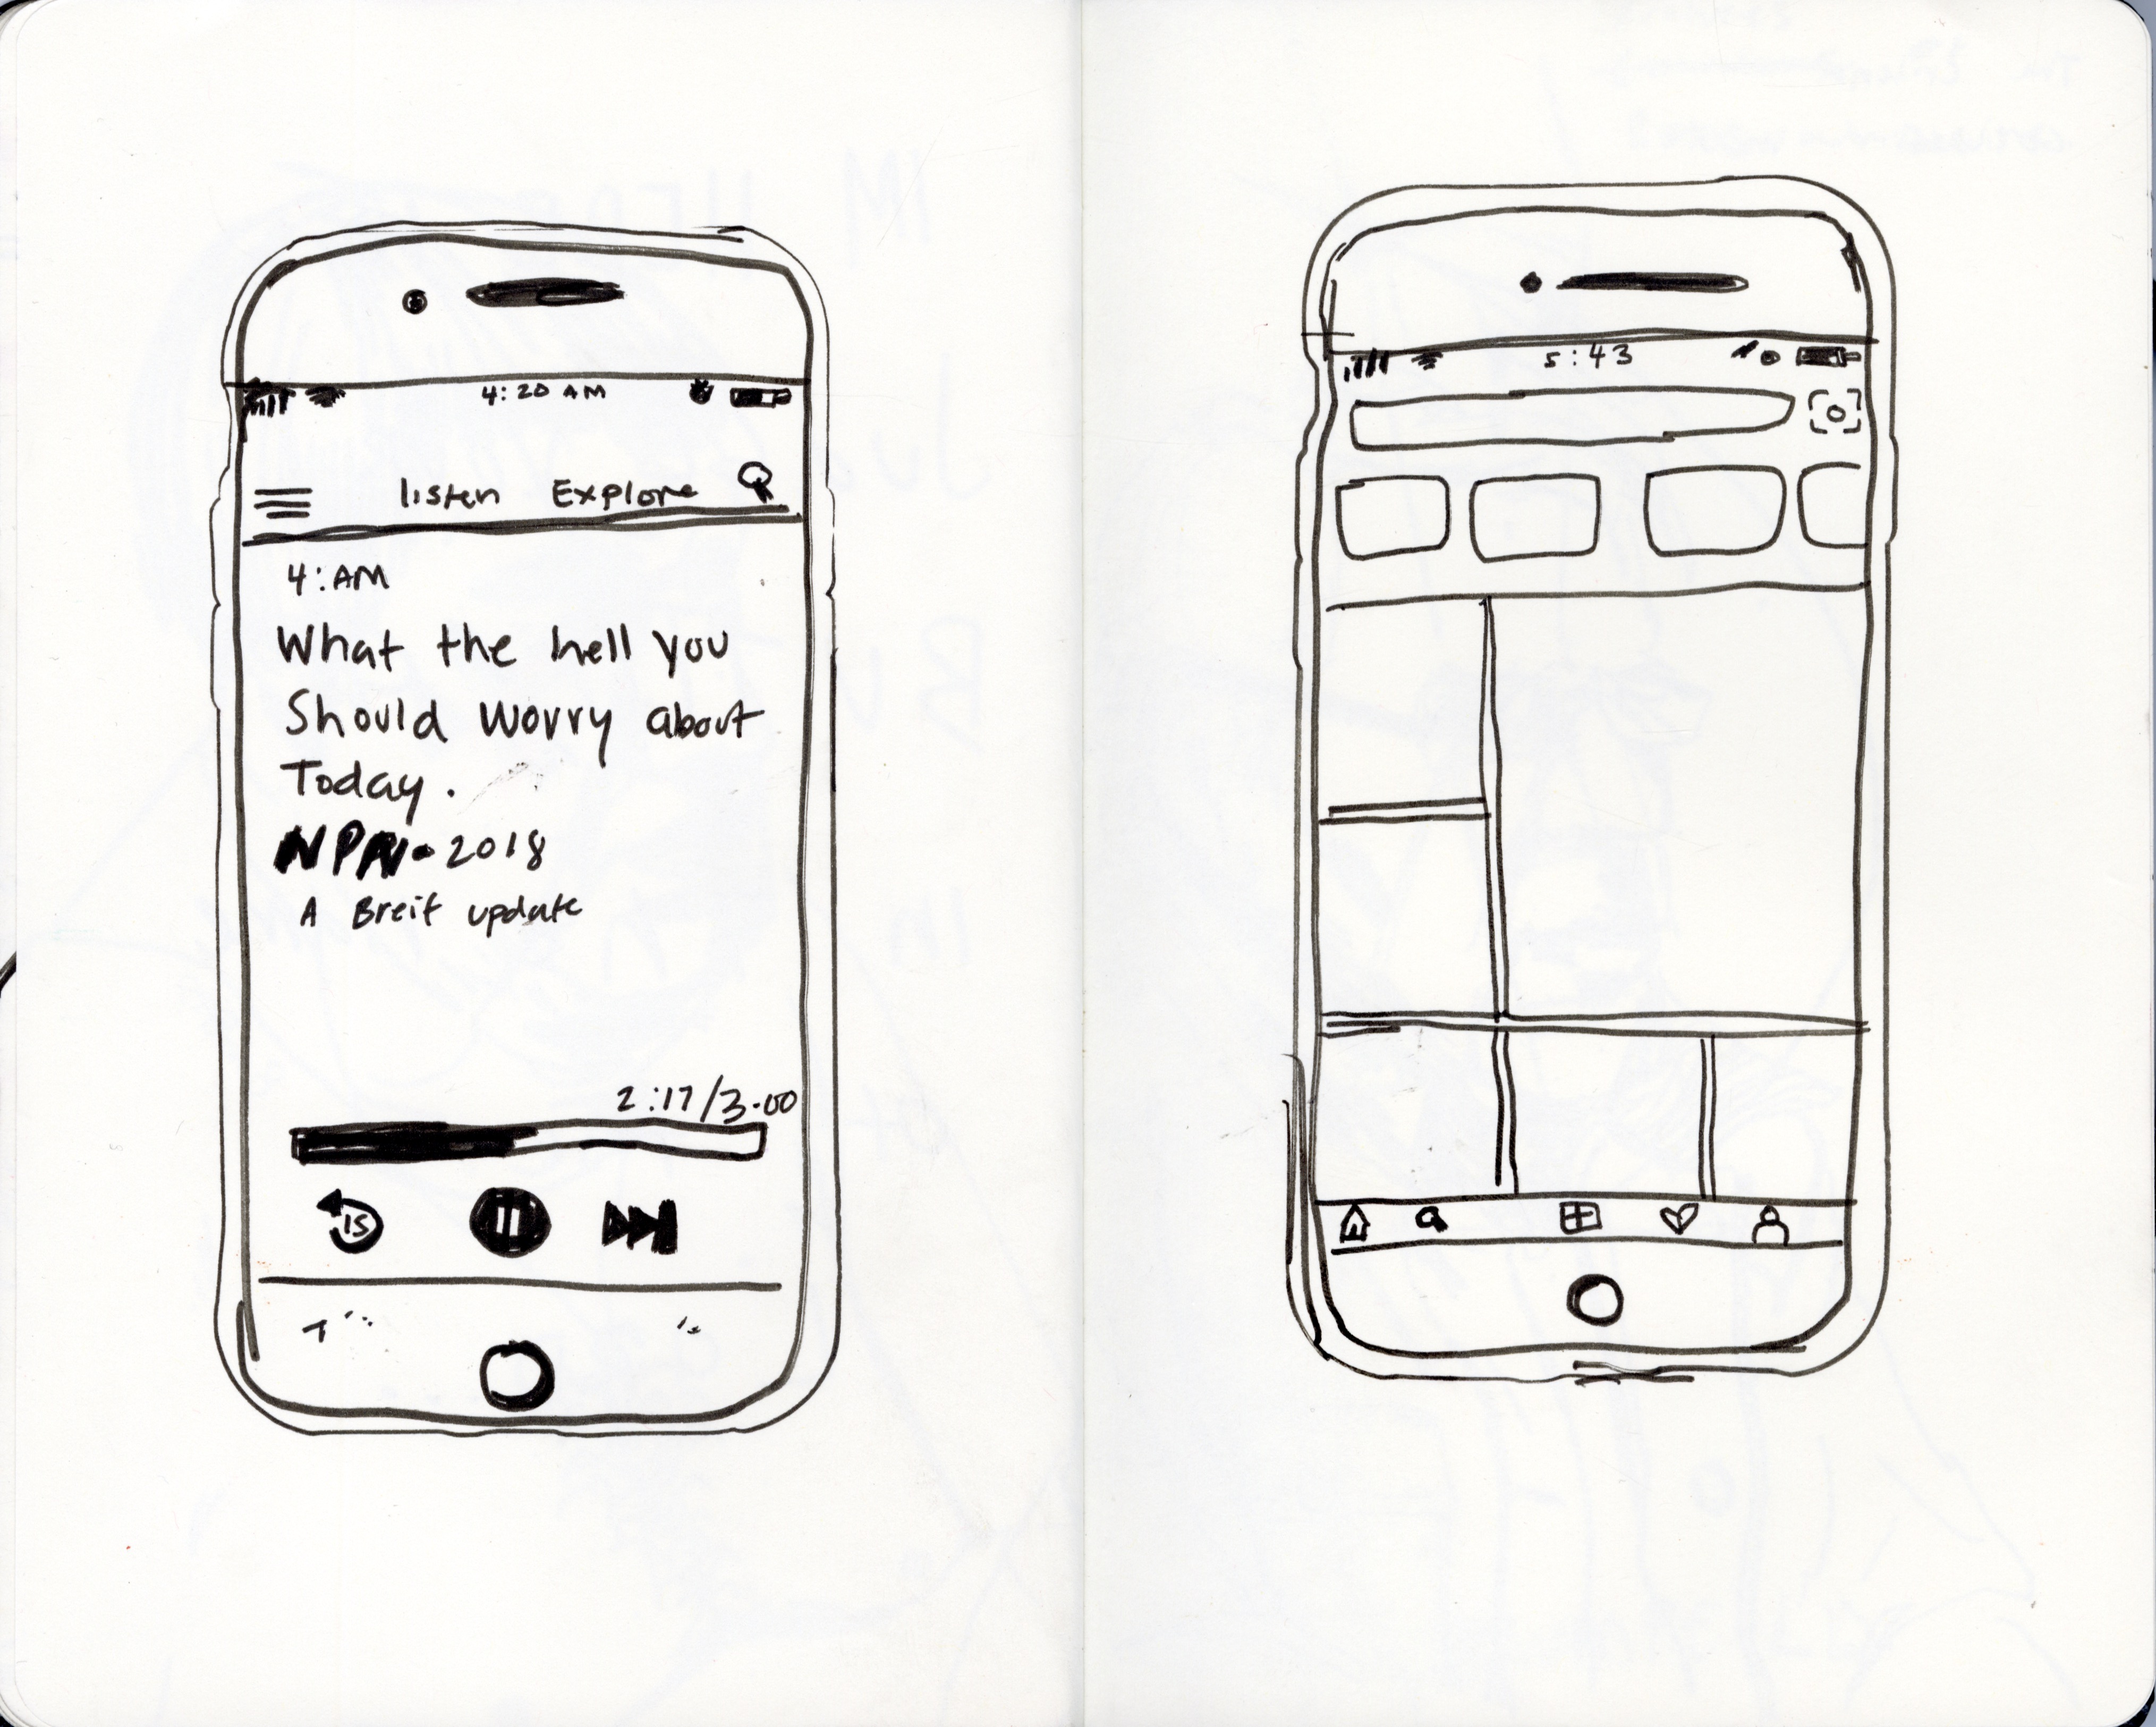 4:20 AM
listen Explore
4:AM
What the hell you
Should Worry about
Today.
NPR • 2018
A Breif update
2:17/3.00
15
5:43